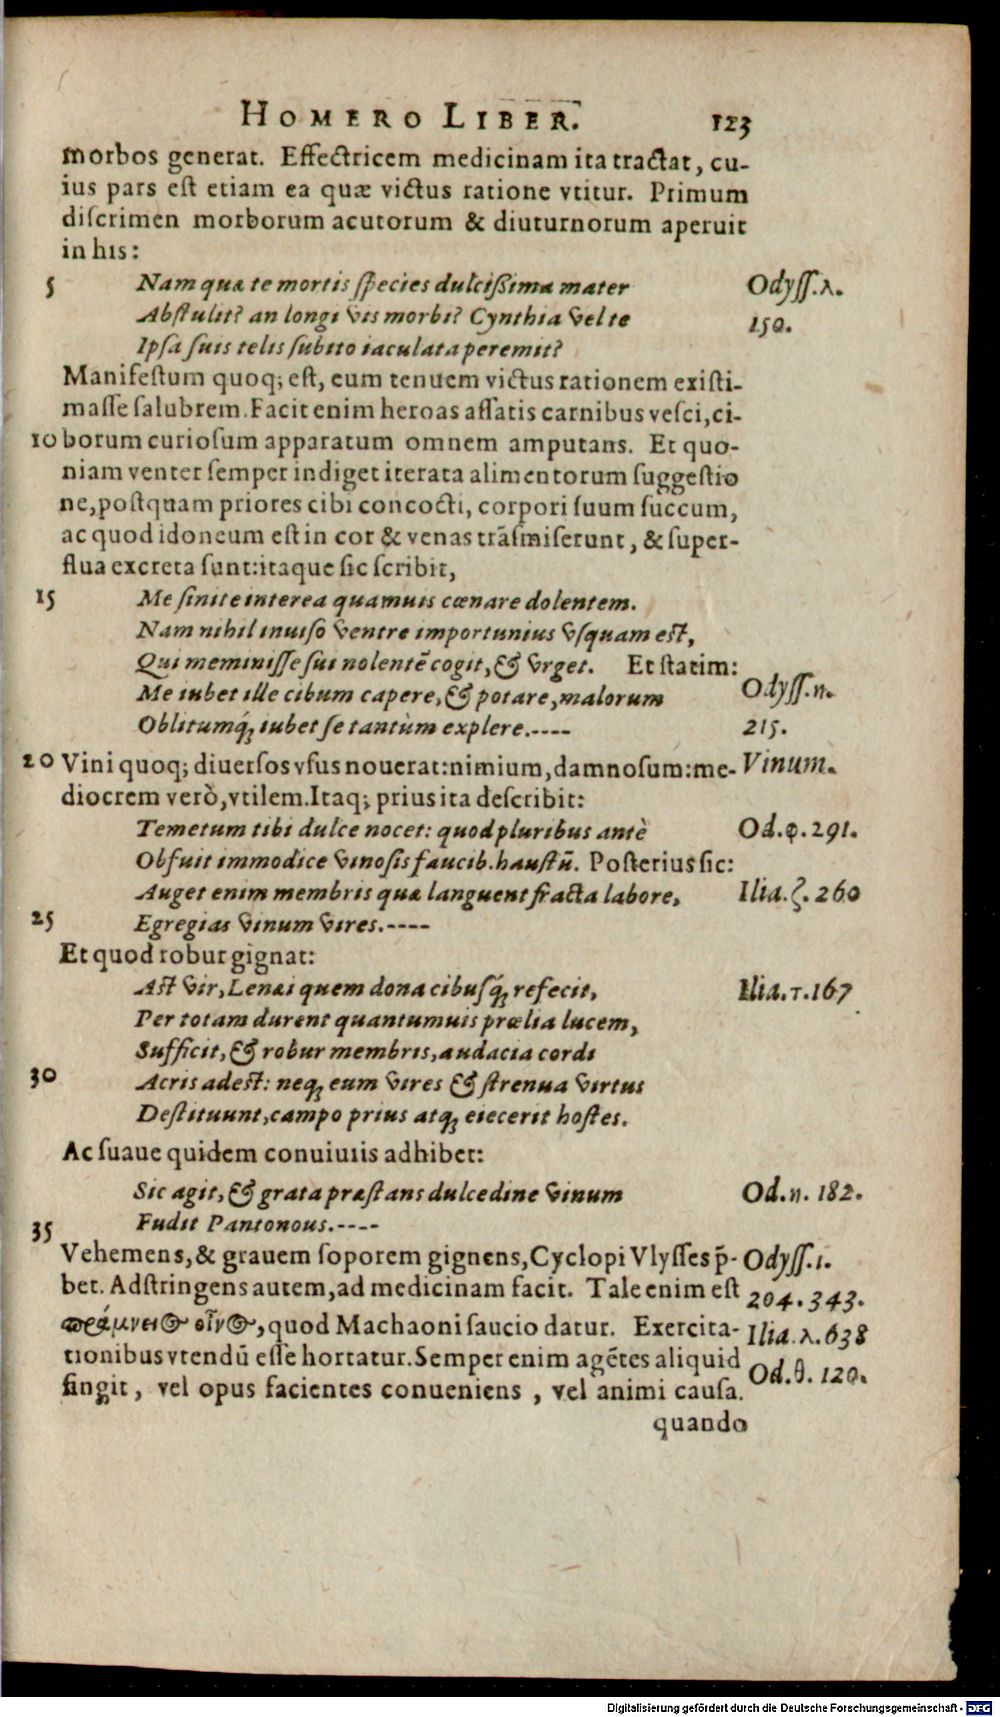 HOMERO LIBER. 123
morbos generat. Effectricem medicinam ita tractat, cu-
ius pars eſt etiam ea quæ victus ratione vtitur. Primum
diſcrimen morborum acutorum & diuturnorum aperuit
in his:
5 Nam quæ te mortis ſpecies dulciſſima mater Odyſſ.λ.
Abſtulit? an longi vis morbi? Cynthia vel te 150.
Ipſa ſuis telis ſubito iaculata peremit?
Manifeſtum quoq; eſt, eum tenuem victus rationem exiſti-
maſſe ſalubrem. Facit enim heroas aſſatis carnibus veſci, ci-
10 borum curioſum apparatum omnem amputans. Et quo-
niam venter ſemper indiget iterata alimentorum ſuggeſtio
ne, poſtquam priores cibi concocti, corpori ſuum ſuccum,
ac quod idoneum eſt in cor & venas trãſmiſerunt, & ſuper-
flua excreta ſunt: itaque ſic ſcribit,
15 Me ſinite interea quamuis cœnare dolentem.
Nam nihil inuiſo ventre importunius vſquam eſt,
Qui meminiſſe ſui nolentẽ cogit, & vrget. Et ſtatim:
Me iubet ille cibum capere, & potare, malorum Odyſſ.η.
Oblitumq́; iubet ſe tantùm explere.---- 215.
20 Vini quoq; diuerſos vſus nouerat: nimium, damnoſum: me- Vinum.
diocrem verò, vtilem. Itaq; prius ita deſcribit:
Temetum tibi dulce nocet: quod pluribus antè Od.φ.291.
Obfuit immodice vinoſis faucib. hauſtũ. Poſterius ſic:
Auget enim membris quæ languent fracta labore, Ilia.ζ.260
25 Egregias vinum vires.----
Et quod robur gignat:
Aſt vir, Lenæi quem dona cibuſq́; refecit, Ilia.τ.167
Per totam durent quantumuis prælia lucem,
Sufficit, & robur membris, audacia cordi
30 Acris adeſt: neq; eum vires & ſtrenua virtus
Deſtituunt, campo prius atq; eiecerit hoſtes.
Ac ſuaue quidem conuiuiis adhibet:
Sic agit, & grata præſtans dulcedine vinum Od.η. 182.
35 Fudit Pantonous.----
Vehemens, & grauem ſoporem gignens, Cyclopi Vlyſſes p̃- Odyſſ.ι.
bet. Adſtringens autem, ad medicinam facit. Tale enim eſt 204.343.
πράμνειος οἶνος, quod Machaoni ſaucio datur. Exercita- Ilia.λ.638
tionibus vtendũ eſſe hortatur. Semper enim agẽtes aliquid
fingit, vel opus facientes conueniens, vel animi cauſa. Od.θ. 120.
quando
Digitalisierung gefördert durch die Deutsche Forschungsgemeinschaft - DFG